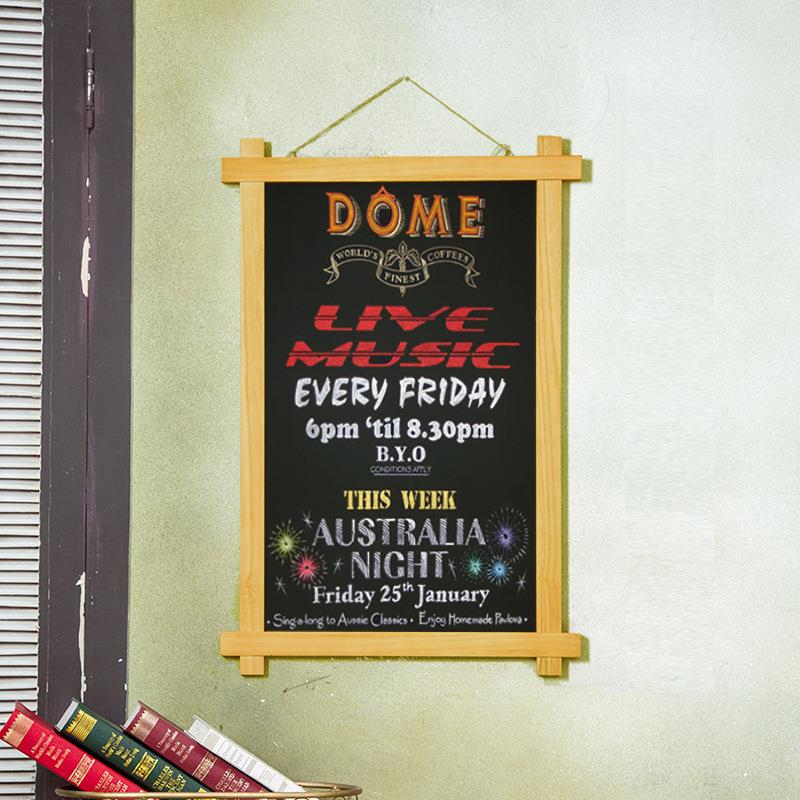 DÔME
WORLD'S FINEST COFFEES
LIVE
MUSIC
EVERY FRIDAY
6pm 'til 8.30pm
B.Y.O
CONDITIONS APPLY
THIS WEEK
AUSTRALIA
NIGHT
Friday 25th January
• Sing-a-long to Aussie Classics • Enjoy Homemade Pavlova •